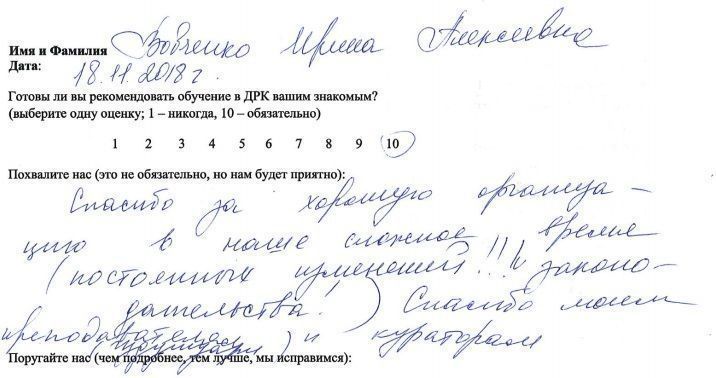 Имя и Фамилия Вовченко Ирина Алексеевна
Дата: 18.11.2018 г.
Готовы ли вы рекомендовать обучение в ДРК вашим знакомым?
(выберите одну оценку; 1 – никогда, 10 – обязательно)
1 2 3 4 5 6 7 8 9 10
Похвалите нас (это не обязательно, но нам будет приятно):
Спасибо за хорошую организа-
цию в наше сложное время
(постоянных изменений!!! законо-
дательства!) Спасибо моим
преподавателям и кураторам
Поругайте нас (чем подробнее, тем лучше, мы исправимся):